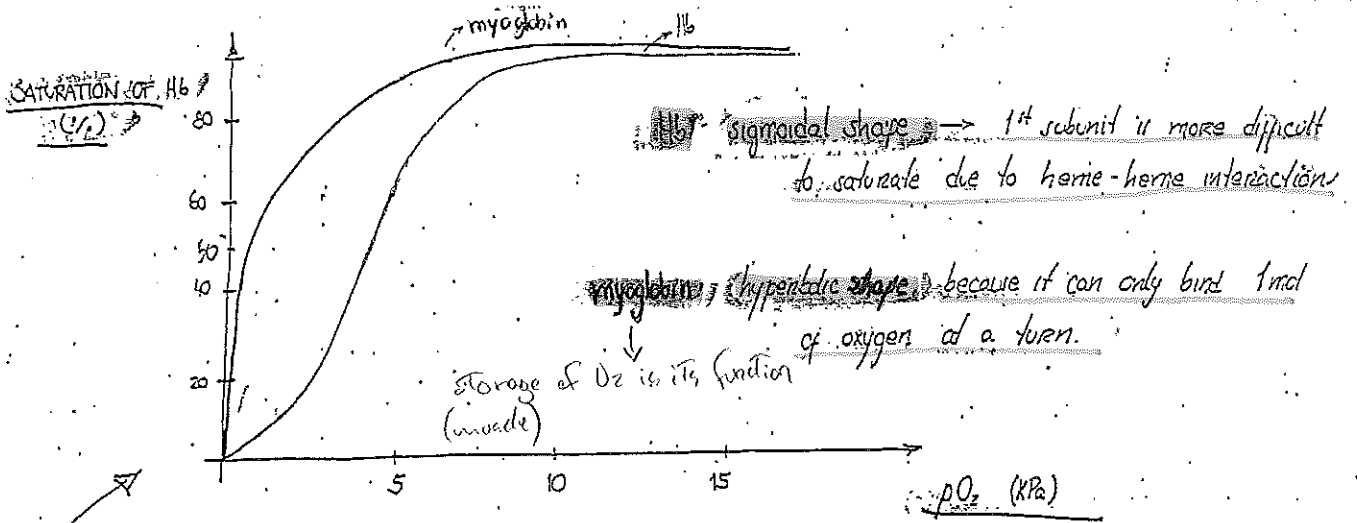 myoglobin
Hb
SATURATION OF Hb
(%)
80
60
50
40
20
Hb - sigmoidal shape → 1st subunit is more difficult
to saturate due to heme-heme interactions
myoglobin, (hyperbolic shape) because it can only bind 1mol
of oxygen at a turn.
↓
storage of O2 is its function
(muscle)
5
10
15
pO2 (KPa)